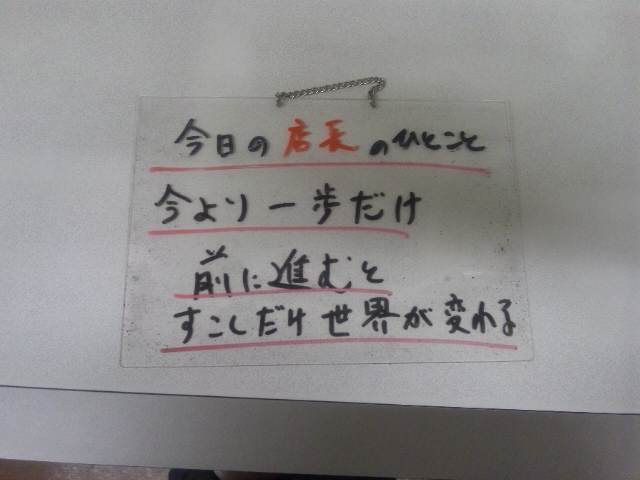 今日の店長のひとこと
今より一歩だけ
前に進むと
すこしだけ世界が変れる